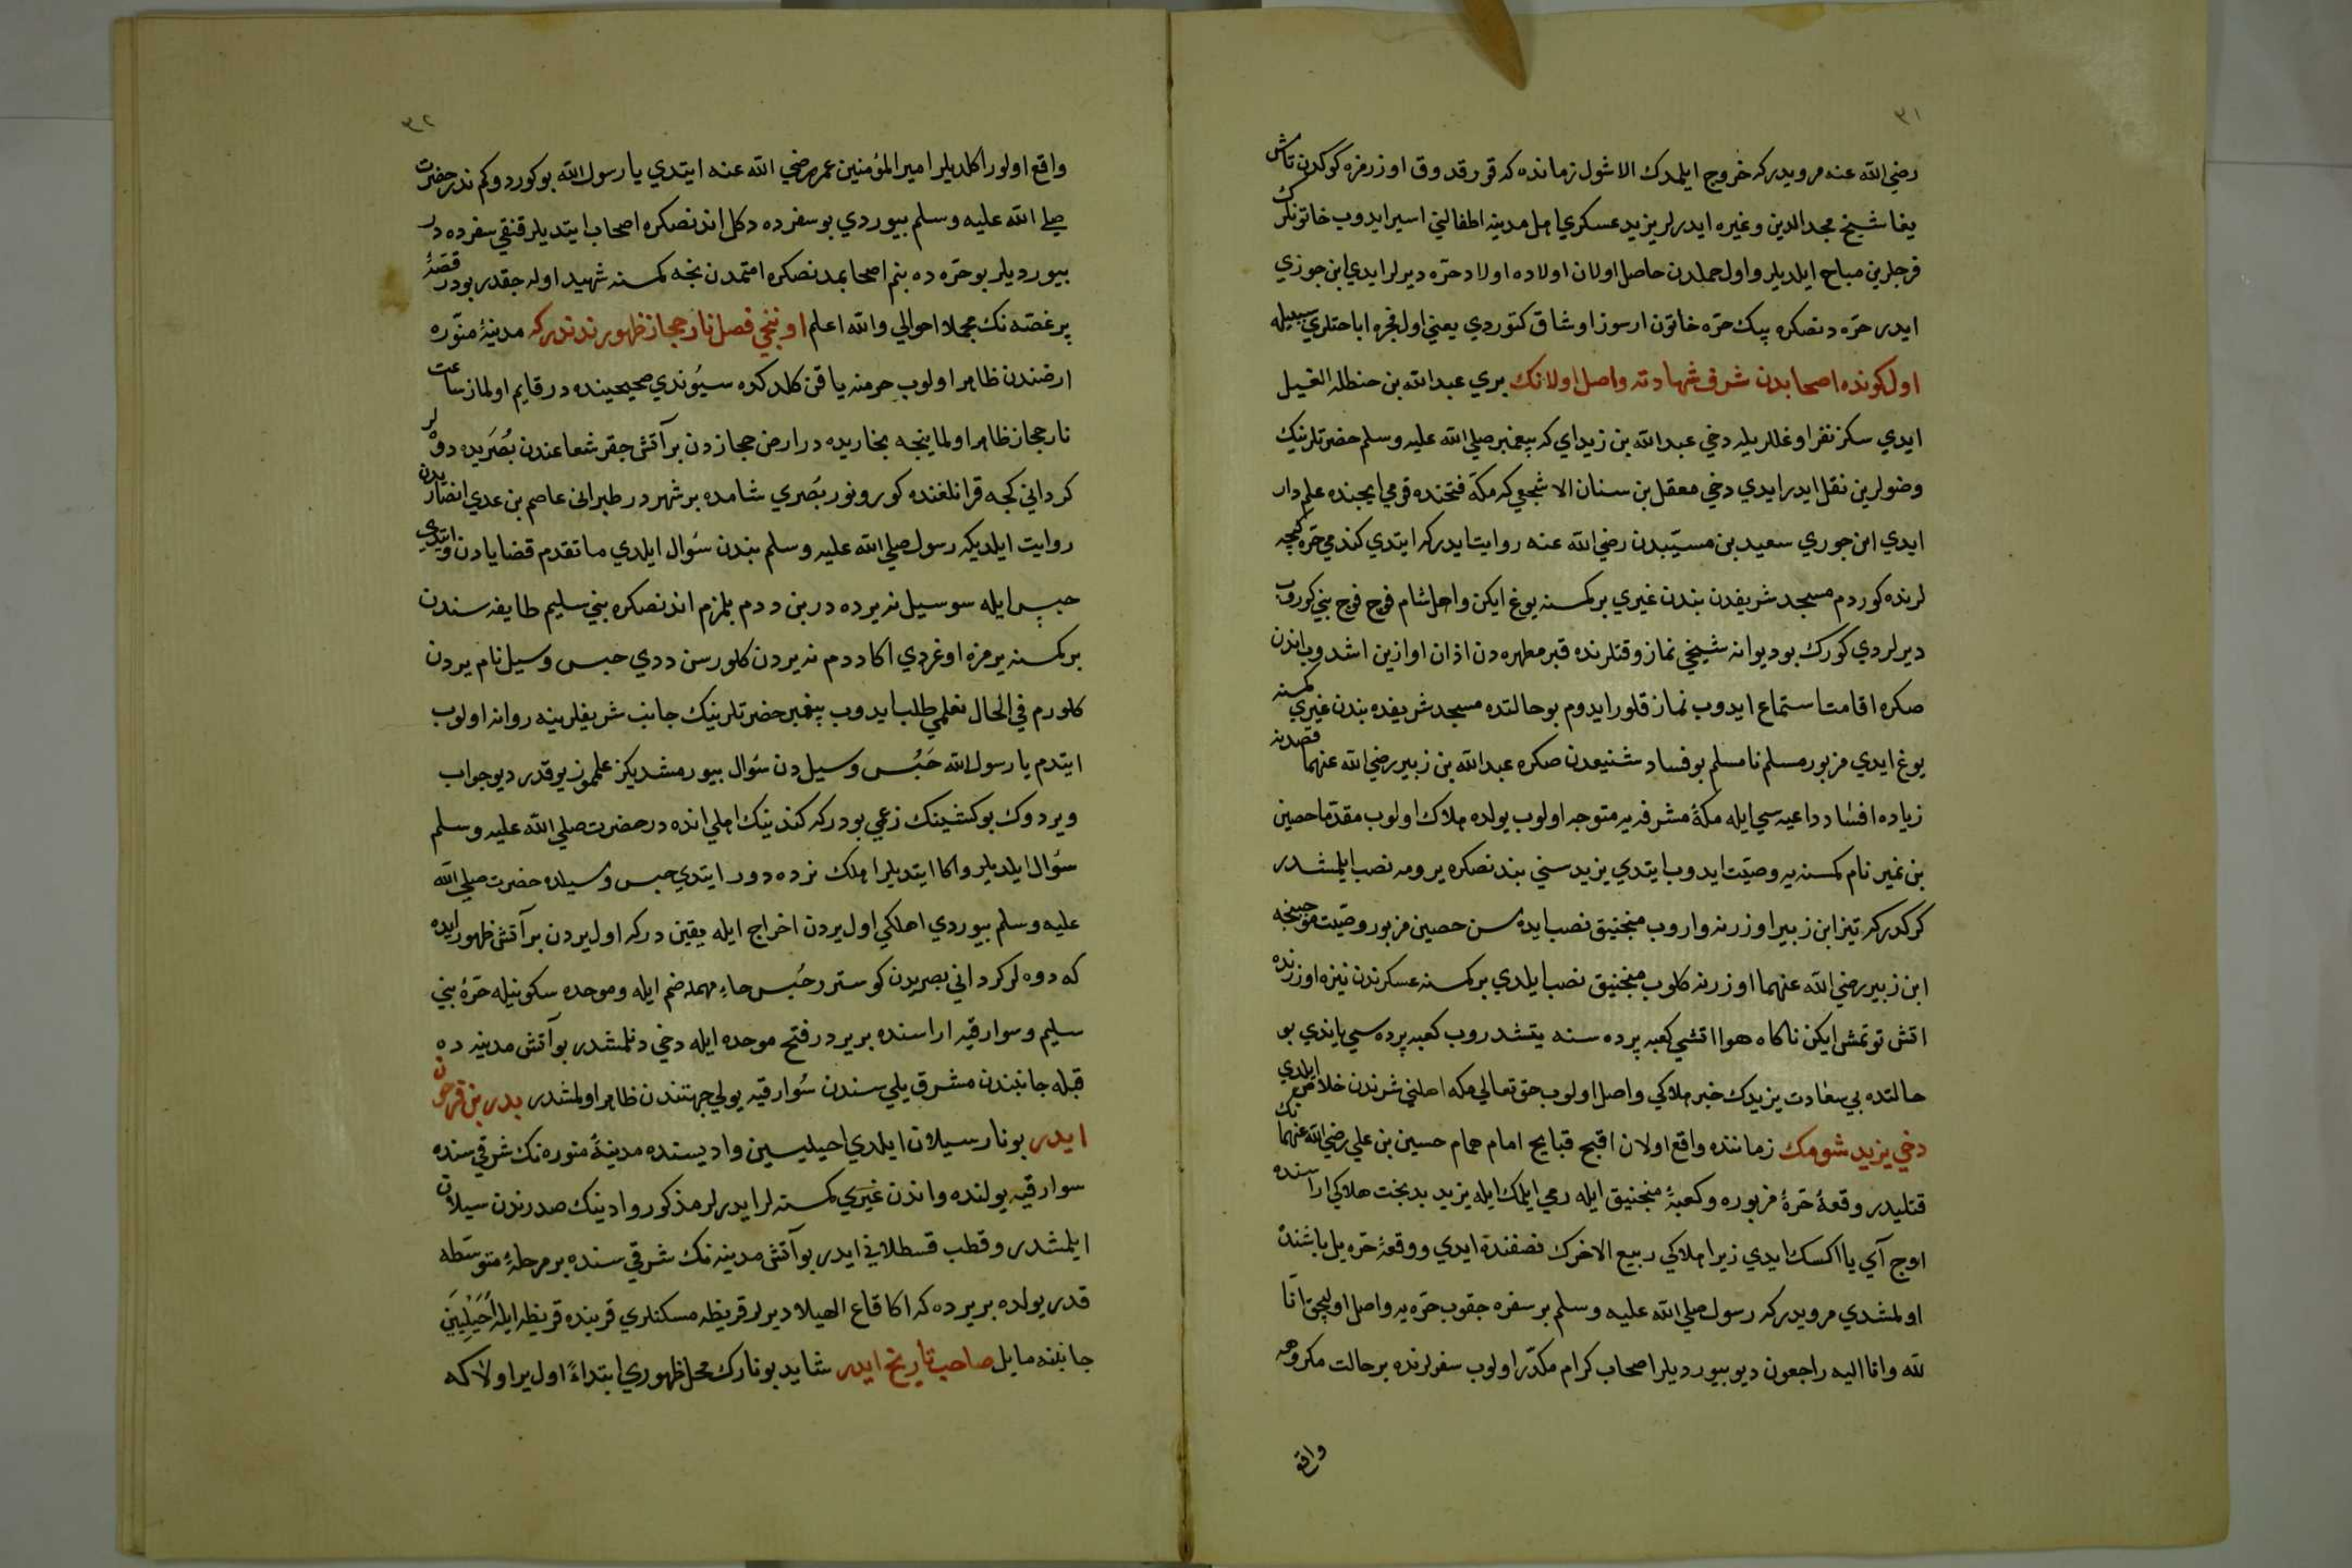 ٣١
رضي الله عنه مرويدركه خروج ايلمدك الا شول زمانده كه قورقدوق اوزرمزه كوكدن تاش
يغا شيخ مجد الدين وغيره ايدرلر يزيد عسكري اهل مدينه اطفالني اسير ايدوب خاتونلرك
فرجلرين مباح ايلديلر واول حملدن حاصل اولان اولاده اولاد حرّه ديرلر ايدي ابن جوزي
ايدر حرّه دنصكره بيك حرّه خاتون ارسوز اوشاق كتوردي يعني اول فجره اباحتلري سببيله
اول كونده اصحابدن شرف شهادته واصل اولانك بري عبدالله بن حنظله الغسيل
ايدي سكز نفر اوغللريله دخي عبدالله بن زيد اي كه پيغمبر صلي الله عليه وسلم حضرتلرينك
وضولرين نقل ايدر ايدي دخي معقل بن سنان الاشجعي كه مكّه فتحنده قومي ايچنده علم دار
ايدي ابن جوزي سعيد بن مسيّبدن رضي الله عنه روايت ايدركه ايتدي كندمي حرّه كيجه
لرنده كوردم مسجد شريفدن بندن غيري بر كمسنه يوغ ايكن واهل شام فوج فوج بني كوروب
ديرلردي كورك بو ديوانه شيخي نماز وقتلرنده قبر مطهره دن اذان اوازين اشدوب اندن
صكره اقامت استماع ايدوب نماز قلور ايدوم بو حالتده مسجد شريفده بندن غيري كمسنه
يوغ ايدي مزبور مسلم نامسلم بو فساد شنيعدن صكره عبدالله بن زبير رضي الله عنهما قصدنه
زياده افساد داعيه سي ايله مكّۀ مشرفه يه متوجه اولوب يولده هلاك اولوب مقدّما حصين
بن نمير نام كمسنه يه وصيّت ايدوب ايتدي يزيد سني بندنصكره يرومه نصب ايلمشدر
كركدركه تيز ابن زبير اوزرنه واروب منجنيق نصب ايده سن حصين مزبور وصيّت موجبنجه
ابن زبير رضي الله عنهما اوزرنه كلوب منجنيق نصب ايلدي بر كمسنه عسكرندن نيزه اوزرنده
اتش توتمش ايكن ناكاه هوا اتشي كعبه پرده سنه يتشدروب كعبه پرده سي ياندي بو
حالتده بي سعادت يزيدك خبر هلاكي واصل اولوب حق تعالي مكه اهلني شرندن خلاص ايلدي
دخي يزيد شومك زماننده واقع اولان اقبح قبايح امام همام حسين بن علي رضي الله عنهما نك
قتليدر وقعۀ حرّۀ مزبوره وكعبۀ منجنيق ايله رمي ايلمك ايله يزيد بدبخت هلاكي اراسنده
اوج آي يا اكسك ايدي زيرا هلاكي ربيع الاخرك نصفنده ايدي ووقعۀ حرّه يل باشنده
اولمشدي مرويدركه رسول صلي الله عليه وسلم بر سفره چقوب حرّه يه واصل اوليجق انّا
لله وانا اليه راجعون ديو بيورديلر اصحاب كرام مكدّر اولوب سفرلرنده بر حالت مكروهه
واقع
٣٢
واقع اولور اكلديلر امير المؤمنين عمر رضي الله عنه ايتدي يا رسول الله بو كوردوكم ندر حضرت
صلي الله عليه وسلم بيوردي بو سفرده دكل اندنصكره اصحاب ايتديلر قنقي سفرده در
بيورديلر بو حرّه ده بنم اصحابمدنصكره امتمدن نجه كمسنه شهيد اولسه جقدر بودر قصّۀ
پر غصّه نك مجملا احوالي والله اعلم اوننجي فصل نار حجاز ظهورندندركه مدينۀ منّوره
ارضندن ظاهر اولوب حرمنه ياقن كلدكده سيُوندي صحيحينده در قايم اولماز ساعت
نار حجاز ظاهر اولماينجه بخاريده در ارض حجازدن بر آتش چقر شعاعندن بُصرَيده دوه لر
كرداني كجه قرانلغنده كورونور بُصري شامده بر شهردر طبراني عاصم بن عدي انصاريدن
روايت ايلديكه رسول صلي الله عليه وسلم بندن سُوال ايلدي ما تقدم قضايادن وايتدي
حبس ايله سوسيل نه يرده در بن ددم بلمزم اندنصكره بني سليم طايفه سندن
بر كمسنه يرمزه اوغردي اكا ددم نه يردن كلورسن ددي حبس وسيل نام يردن
كلورم في الحال نعلمي طلب ايدوب پيغمبر حضرتلرينك جانب شريفلرينه روانه اولوب
ايتدم يا رسول الله حَبُس وسيلدن سُوال بيورمشديكز علمموز يوقدر ديو جواب
ويردوك بو كشينك زعمي بودركه كندينك اهلي انده در حضرت صلي الله عليه وسلم
سُوال ايلديلر واكا ايتديلر اهلك نرده دور ايتدي حبس وسيلده حضرت صلي الله
عليه وسلم بيوردي اهلكي اول يردن اخراج ايله يقين دركه اول يردن بر آتش ظهور ايده
كه دوه لر كرداني بصريدن كوستر رحُبس حاءِ مهمله ضم ايله وموحده سكونيله حرّۀ بني
سليم وسوارقيه اراسنده بر يردر فتح موحده ايله دخي دنلمشدر بو آتش مدينه ده
قبله جانبندن مشرق يلي سندن سُوارقيه يولي جهتندن ظاهر اولمشدر بدر بن فرحون
ايدر بو نار سيلان ايلدي احيليين واديسنده مدينۀ منوره نك شرقي سنده
سوارقيه يولنده واندن غيري كمسنه لر ايدرلر مذكور وادينك صدرندن سيلان
ايلمشدر وقطب قسطلاني ايدر بو آتش مدينه نك شرقي سنده بر مرحلۀ متوسّطه
قدر يولده بر يرده كه اكا قاع الهيلا ديرلر قريظه مسكنلري قربنده قريظه ايله اُحَيْلِيَين
جانبنه مايل صاحب تاريخ ايدر شايد بو نارك محل ظهوري ابتداءً اول ير اولا كه